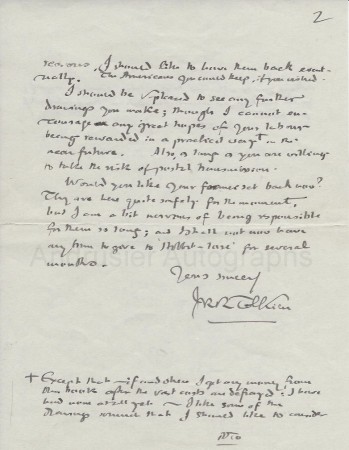 2
reasons, I should like to have them back event-
ually. The Americans you could keep, if you wished.
I should be v. pleased to see any further
drawings you make; though I cannot en-
courage any great hopes of your labour
being rewarded in a practical way† in the
near future. Also, as long as you are willing
to take the risk of postal transmission.
Would you like your former set back now?
They are here quite safely for the moment,
but I am a bit nervous of being responsible
for them so long; and I shall not now have
any time to give to 'Hobbit-lore' for several
months.
Yours sincerely
JRR Tolkien
Autographs
† Except that – if and when I get any money from
this book after the vast costs are defrayed: I have
had none at all yet – I like some of the
drawings so much that I should like to consider